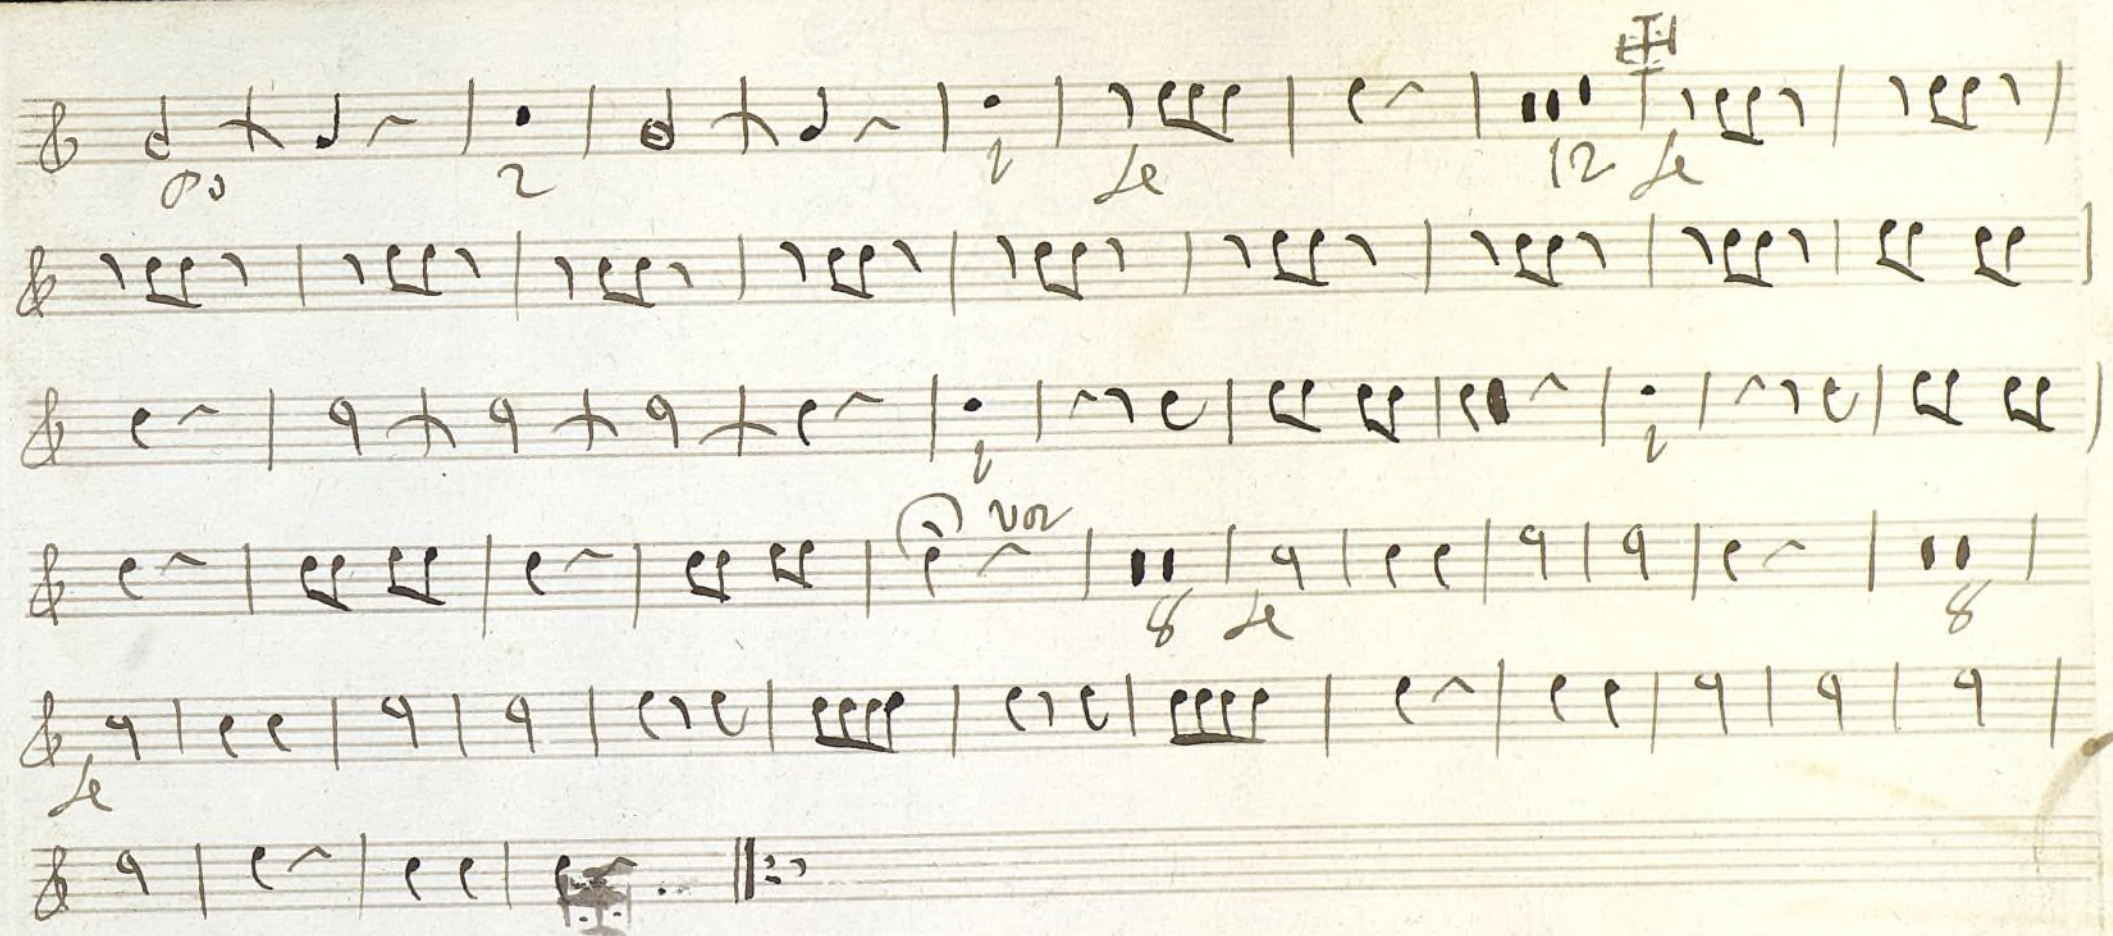 po 2 1 fe 12 fe
1 1
voz
8 fe 8
fe